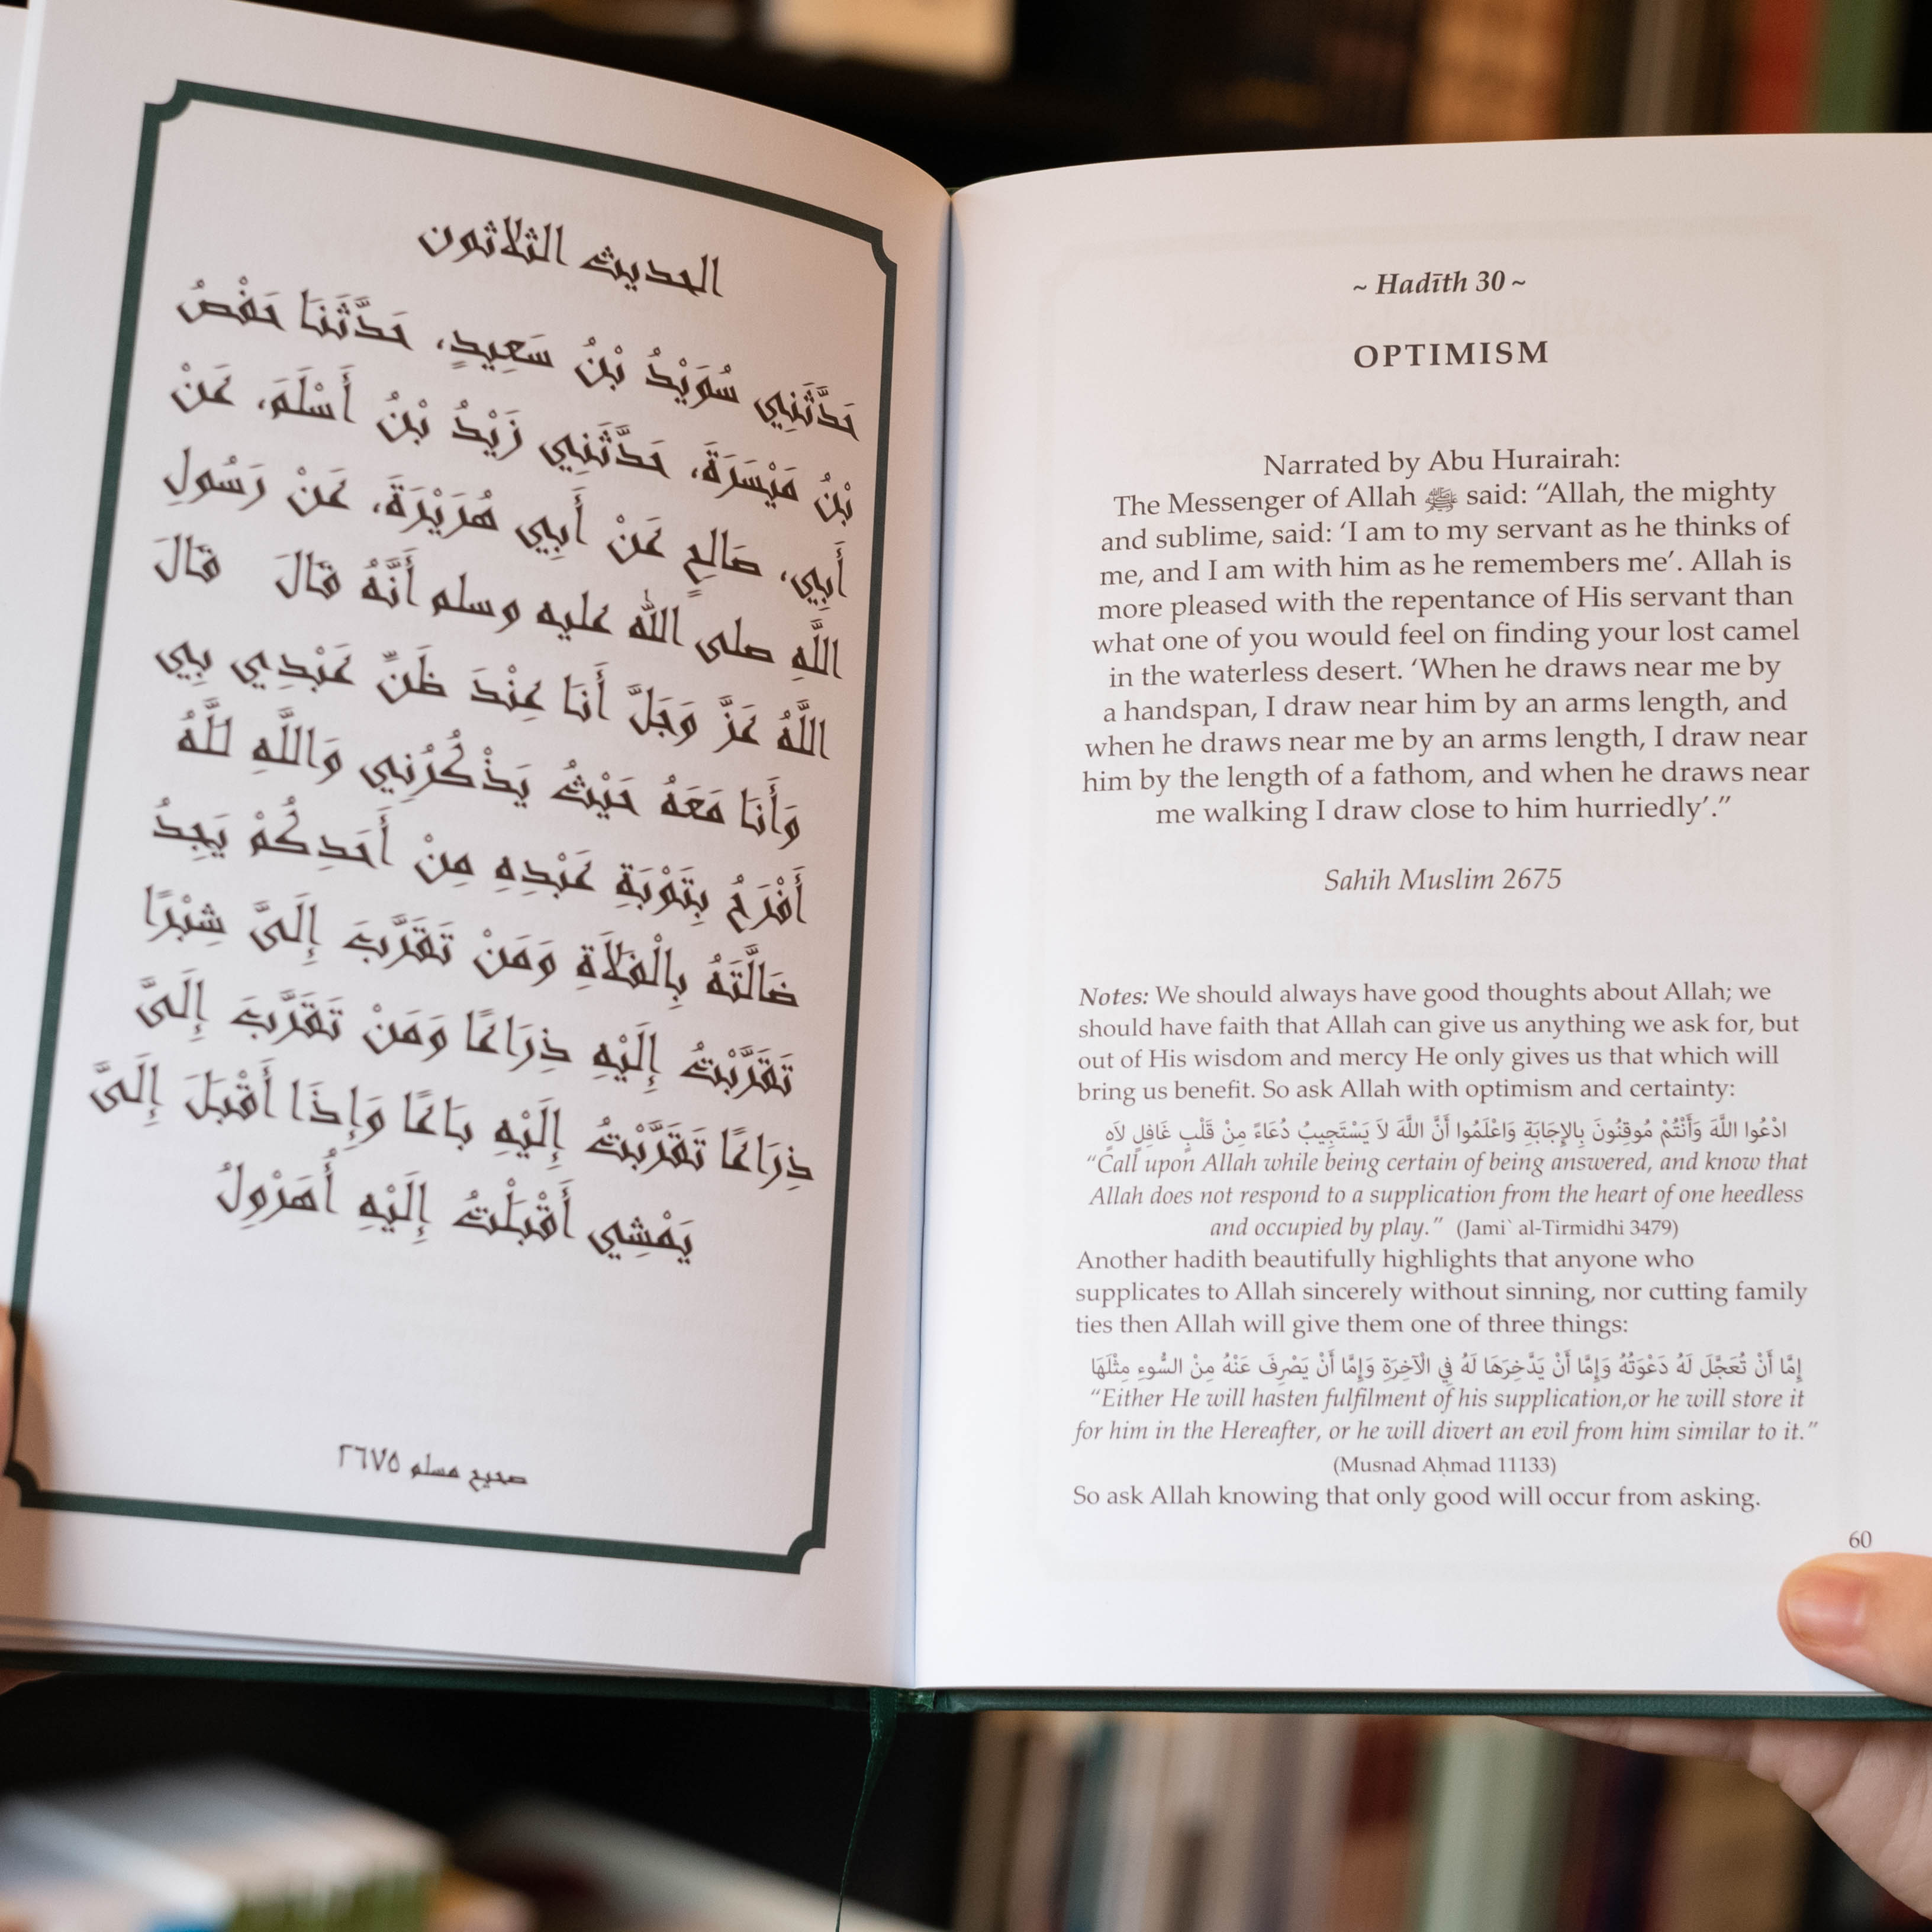 الحديث الثلاثون
حَدَّثَنِي سُوَيْدُ بْنُ سَعِيدٍ، حَدَّثَنَا حَفْصُ
بْنُ مَيْسَرَةَ، حَدَّثَنِي زَيْدُ بْنُ أَسْلَمَ، عَنْ
أَبِي، صَالِحٍ عَنْ أَبِي هُرَيْرَةَ، عَنْ رَسُولِ
اللَّهِ صلى الله عليه وسلم أَنَّهُ قَالَ قَالَ
اللَّهُ عَزَّ وَجَلَّ أَنَا عِنْدَ ظَنِّ عَبْدِي بِي
وَأَنَا مَعَهُ حَيْثُ يَذْكُرُنِي وَاللَّهِ لَلَّهُ
أَفْرَحُ بِتَوْبَةِ عَبْدِهِ مِنْ أَحَدِكُمْ يَجِدُ
ضَالَّتَهُ بِالْفَلاَةِ وَمَنْ تَقَرَّبَ إِلَىَّ شِبْرًا
تَقَرَّبْتُ إِلَيْهِ ذِرَاعًا وَمَنْ تَقَرَّبَ إِلَىَّ
ذِرَاعًا تَقَرَّبْتُ إِلَيْهِ بَاعًا وَإِذَا أَقْبَلَ إِلَىَّ
يَمْشِي أَقْبَلْتُ إِلَيْهِ أُهَرْوِلُ
صحيح مسلم ٢٦٧٥
~ Hadīth 30 ~
OPTIMISM
Narrated by Abu Hurairah:
The Messenger of Allah ﷺ said: “Allah, the mighty
and sublime, said: ‘I am to my servant as he thinks of
me, and I am with him as he remembers me’. Allah is
more pleased with the repentance of His servant than
what one of you would feel on finding your lost camel
in the waterless desert. ‘When he draws near me by
a handspan, I draw near him by an arms length, and
when he draws near me by an arms length, I draw near
him by the length of a fathom, and when he draws near
me walking I draw close to him hurriedly’.”
Sahih Muslim 2675
Notes: We should always have good thoughts about Allah; we
should have faith that Allah can give us anything we ask for, but
out of His wisdom and mercy He only gives us that which will
bring us benefit. So ask Allah with optimism and certainty:
ادْعُوا اللَّهَ وَأَنْتُمْ مُوقِنُونَ بِالإِجَابَةِ وَاعْلَمُوا أَنَّ اللَّهَ لاَ يَسْتَجِيبُ دُعَاءً مِنْ قَلْبٍ غَافِلٍ لاَهٍ
“Call upon Allah while being certain of being answered, and know that
Allah does not respond to a supplication from the heart of one heedless
and occupied by play.” (Jami` al-Tirmidhi 3479)
Another hadith beautifully highlights that anyone who
supplicates to Allah sincerely without sinning, nor cutting family
ties then Allah will give them one of three things:
إِمَّا أَنْ تُعَجَّلَ لَهُ دَعْوَتُهُ وَإِمَّا أَنْ يَدَّخِرَهَا لَهُ فِي الْآخِرَةِ وَإِمَّا أَنْ يَصْرِفَ عَنْهُ مِنْ السُّوءِ مِثْلَهَا
“Either He will hasten fulfilment of his supplication,or he will store it
for him in the Hereafter, or he will divert an evil from him similar to it.”
(Musnad Aḥmad 11133)
So ask Allah knowing that only good will occur from asking.
60